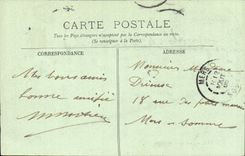 CARTE POSTALE
Tous les Pays étrangers n'acceptent pas la Correspondance au recto.
(Se renseigner à la Poste).
CORRESPONDANCE
ADRESSE
Mes bons amis
bonne amitié
Monsieur Madame
18 rue des
Mers - Somme
MERS